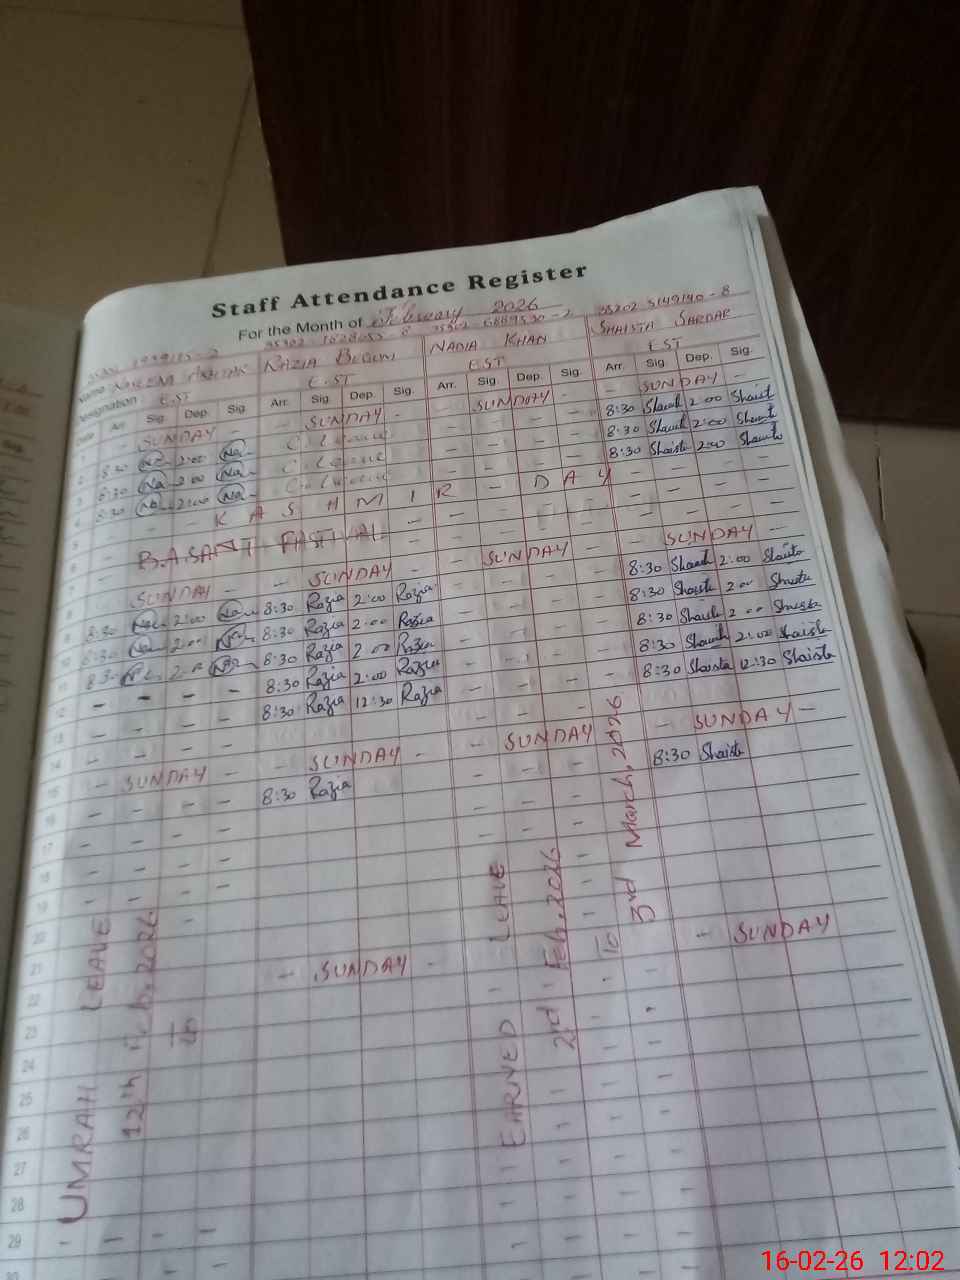 Staff Attendance Register
For the Month of February 2026
35302 8 35302 6689530-2 35202 5149140-8
Name RAZIA BEGUM NADIA KHAN SHAISTA SARDAR
Designation EST EST EST EST
Date Arr. Sig. Dep. Sig. Arr. Sig. Dep. Sig. Arr. Sig. Dep. Sig. Arr. Sig. Dep. Sig.
1 - SUNDAY - - SUNDAY - - SUNDAY - - SUNDAY -
2 8:30 Na 2:00 Na C. Leave - - 8:30 Shaist 2:00 Shaist
3 8:30 Na 2:00 Na C. Leave - - 8:30 Shaist 2:00 Shaist
4 8:30 Na 2:00 Na C. Leave - - 8:30 Shaista 2:00 Shaista
5 - - KASHMIR - DAY - - - -
6 - BASANT FASTIVAL - - - - - - - -
7 - - - - - -
8 - SUNDAY - - SUNDAY - - SUNDAY - - SUNDAY -
9 8:30 2:00 8:30 Razia 2:00 Razia - - - 8:30 Shaist 2:00 Shaista
10 8:30 2:00 8:30 Razia 2:00 Razia - - - 8:30 Shaista 2:00 Shaista
11 8:30 2:00 8:30 Razia 2:00 Razia - - - 8:30 Shaista 2:00 Shaista
12 - - - - 8:30 Razia 2:00 Razia - - - 8:30 Shaista 2:00 Shaista
13 - - - 8:30 Razia 12:30 Razia - - - 8:30 Shaista 12:30 Shaista
14 - - - - - -
15 - SUNDAY - - SUNDAY - - SUNDAY - SUNDAY -
16 - - - 8:30 Razia - - - 8:30 Shaista
17
18
19
20
21
22 - SUNDAY - - SUNDAY
23
24
25
26
27
28
29
UMRAH LEAVE
12th Feb, 2026
to
EARNED LEAVE
2nd Feb, 2026
to
3rd March, 2026
16-02-26 12:02